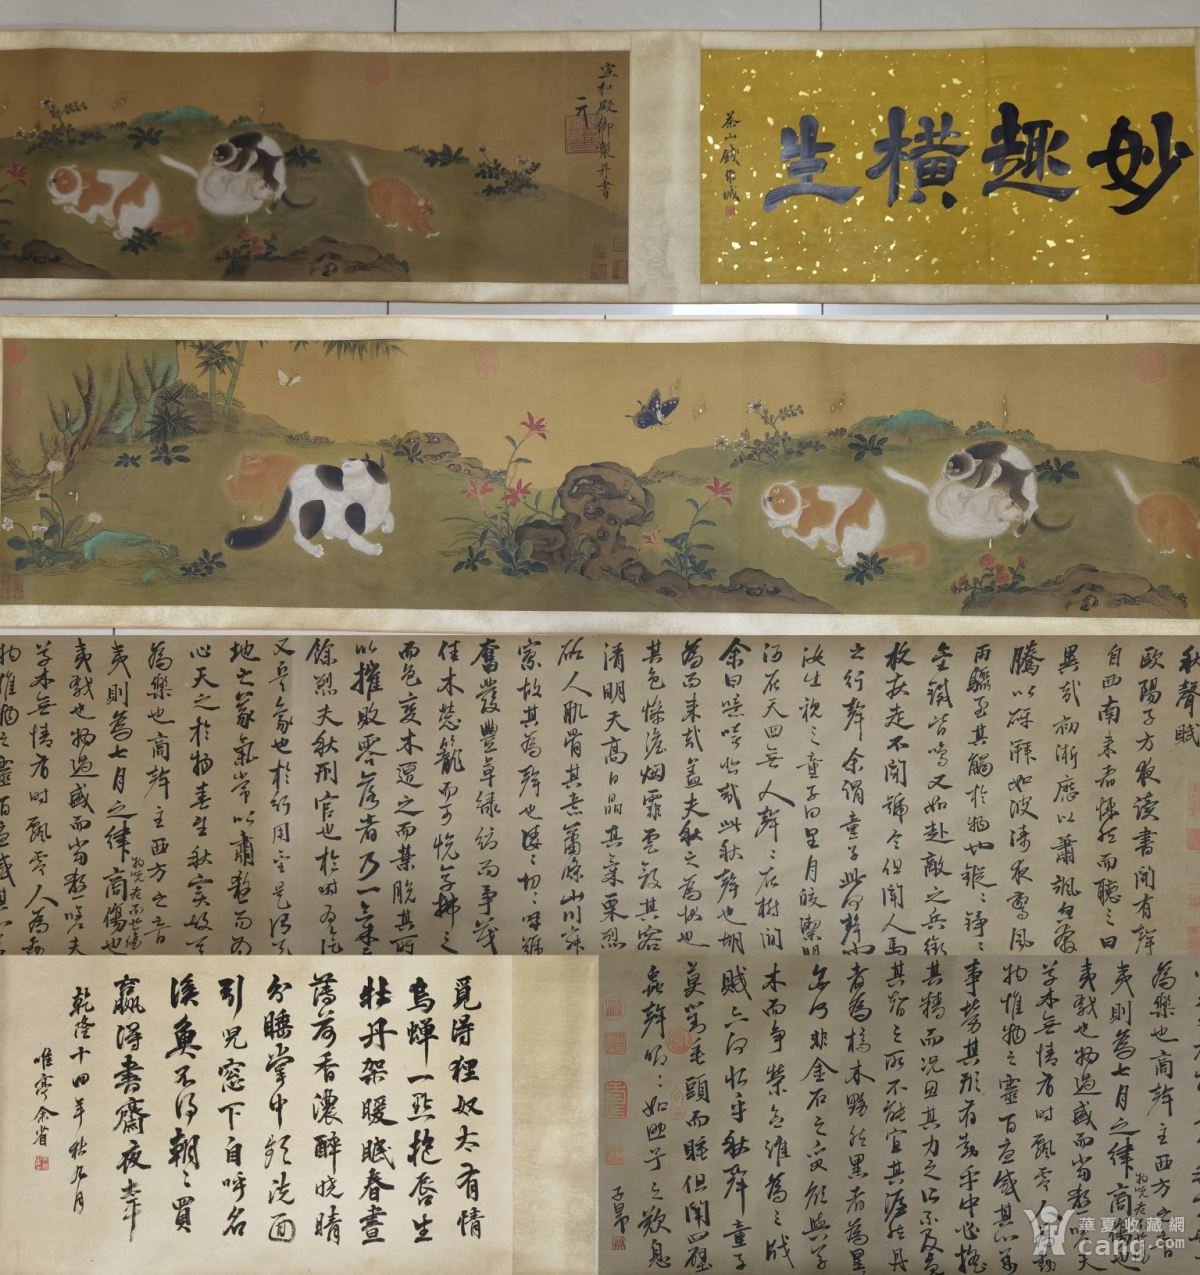 妙趣橫生
茶山錢維城
宣和殿御製并書
秋聲賦
歐陽子方夜讀書聞有聲
自西南來者悚然而聽之曰
異哉初淅瀝以蕭颯忽奔
騰以砰湃如波濤夜驚風
雨驟至其觸於物也鏦鏦錚錚
金鐵皆鳴又如赴敵之兵銜
枚疾走不聞號令但聞人馬
之行聲余謂童子此何聲也
汝出視之童子曰星月皎潔明
河在天四無人聲聲在樹間
余曰噫嘻悲哉此秋聲也胡
為而來哉蓋夫秋之為狀也
其色慘澹烟霏雲斂其容
清明天高日晶其氣栗烈
砭人肌骨其意蕭條山川寂
寥故其為聲也淒淒切切呼號
奮發豐草綠縟而爭茂
佳木葱籠而可悅草拂之
而色變木遭之而葉脫其所
以摧敗零落者乃一氣之
餘烈夫秋刑官也於時為陰
又兵象也於行用金是謂天
地之義氣常以肅殺而為
心天之於物春生秋實故其
為樂也商聲主西方之音
夷則為七月之律商傷也
物既老而悲傷
夷戮也物過盛而當殺嗟夫
草木無情有時飄零人為動
物惟物之靈百憂感其心
為樂也商聲主西方之音
夷則為七月之律商傷也
物既老而悲傷
夷戮也物過盛而當殺嗟夫
草木無情有時飄零人為動
物惟物之靈百憂感其心萬
事勞其形有動乎中必搖
其精而況思其力之所不及憂
其智之所不能宜其渥然丹
者為槁木黟然黑者為星
星奈何非金石之質欲與草
木而爭榮念誰為之戕
賊亦何恨乎秋聲童子
莫對垂頭而睡但聞四壁
蟲聲唧唧如助予之歎息
子昂
覓得狸奴太有情
烏蟬一點抱唇生
牡丹架暖眠春晝
薄荷香濃醉曉晴
分睡掌中頻洗面
引兒窓下自呼名
溪魚不惜朝朝買
贏得書齋夜太平
乾隆十四年秋九月
唯亭余省
華夏收藏網
cang.com